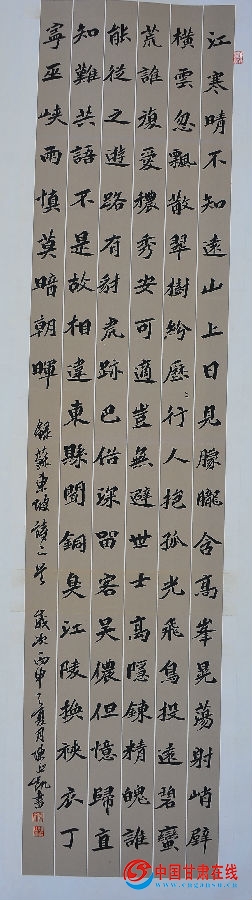 江寒晴不知遠山上日見朦朧含高峯晃蕩射峭壁
橫雲忽飄散翠樹紛歷〻行人挹孤光飛鳥投遠碧蠻
荒誰復愛穠秀安可適豈無避世士高隱鍊精魄誰
能從之遊路有豺虎跡巴俗深留客吳儂但憶歸直
知難共語不是故相違東縣聞銅臭江陵換裌衣丁
寧巫峽雨慎莫暗朝暉
錄蘇東坡詩二首 歲次丙申之夏月 書
中国甘肃在线
www.cngansu.cn